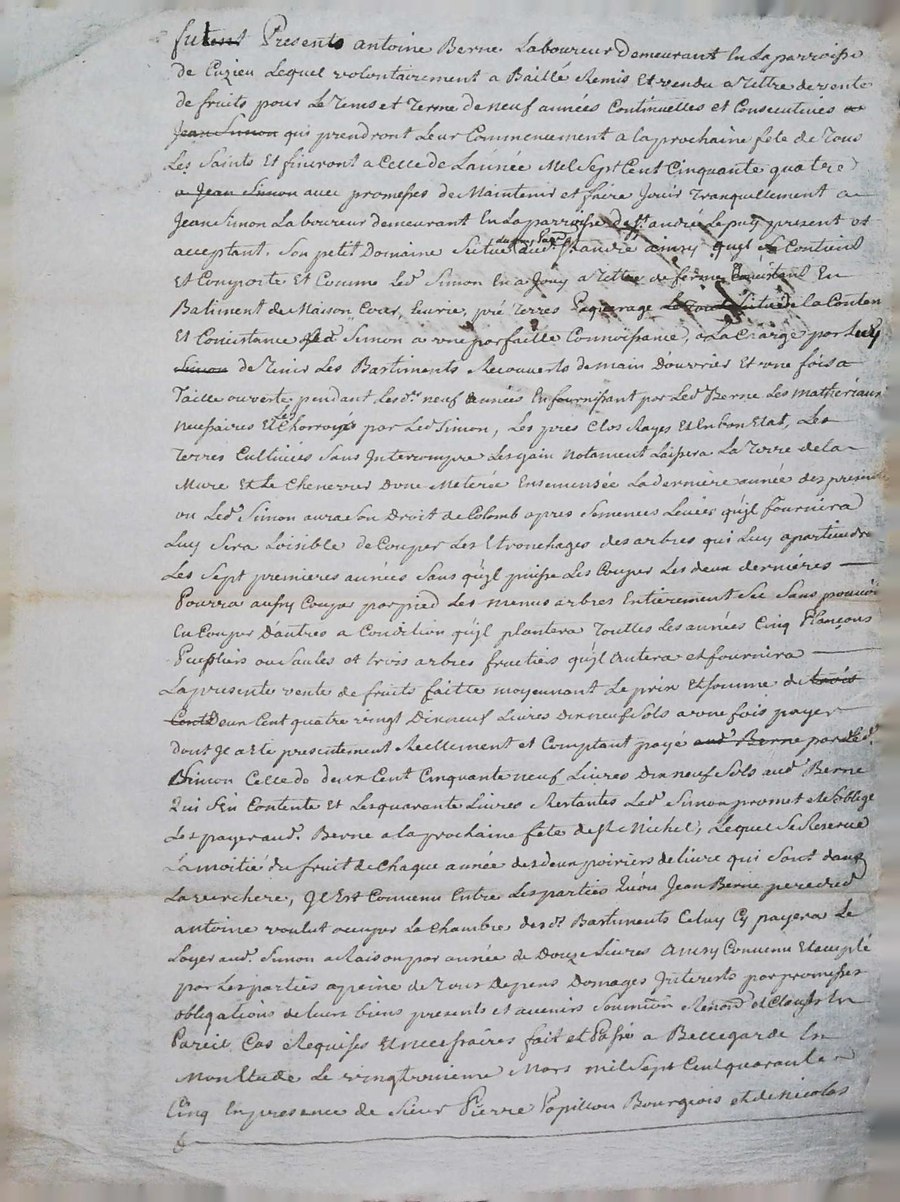 futent Presents antoine Berne Laboureur Demeurant En La parroisse
de Cuzien Lequel volontairement a Baillé Remis Et vendu a Tittre de vente
de fruits pour Le Tems et Terme de neuf années Continuelles et Consecutives
Jean Simon qui prendront Leur Commencement a la prochaine fete de Tous
Les Saints Et finiront a Celle de L'année Mil Sept Cent Cinquante quatre
a Jean Simon avec promesses de Maintenir et faire Jouir Tranquillement a
Jean Simon Laboureur demeurant En La parroisse de St. andré Le puy present et
acceptant, Son petit Domaine Situé St andré quyl Contient
Et Comporte Et Comme Led. Simon En a Jouy a Tittre de ferme Concistant En
Batiment de Maison Cour, pré Terres Paquerage La Conten
Et Concistance Led Simon a une parfaitte Connoissance, a La Charge par Luy
Simon de Tenir Les Bastiments Recouverts de main D'ouvrier Et une fois a
Taille ouverte pendant Lesd. neuf années En fournissant par Led. Berne Les matheriaux
necessaires Et Les Charroyés par Led. Simon, Les prés Clos Rayes Et En bon Etat, Les
Terres Cultivées Sans Interrompre Les gain notament Laissera La Terre de la
Mure Et Le Chenevier D'une Meterée Ensemensée La derniere année des presentes
ou Led. Simon aura Son Droit de Colomb apres Semences Levées quyl fournira
Luy Sera Loisible de Couper Les Etronchages des arbres qui Luy apartiendra
Les Sept premieres années Sans quyl puisse Les Couper Les deux dernieres
Pourra aussy Couper par pied Les menus arbres Entierement Sec Sans pouvoir
En Couper D'autres a Condition quyl plantera Touttes Les années Cinq Plançons
Peupliers ou Saules et trois arbres fructiers quyl Entera et fournira
La presente vente de fruits faitte moyennant Le prix Et Somme de trois
Cents Deux Cent quatre vingt Dixneuf Livres Dixneuf Sols a une fois payer
dont Je a Ete presentement Reellement et Comptant payé aud. Berne par Led.
Simon Celle de deux Cent Cinquante neuf Livres Dixneuf Sols aud. Berne
Qui S'En Contente Et Les quarante Livres Restantes Led. Simon promet et S'oblige
Les payer aud. Berne a la prochaine fete de St Michel, Lequel Se Reserve
La moitié du fruit de Chaque année des deux poiriers de Livre qui Sont dans
La verchere, Il Est Convenu Entre Les parties Qu'ou Jean Berne pere dud
antoine voulut occuper La Chambre desd. Bastiments Celuy Cy payera Le
Loyer aud. Simon a Raison par année de Douze Livres ainsy Convenu Et accepté
par Les parties a peine de Tous Depens Domages Interests par promesses
obligations de leurs biens presents et avenirs Soumission Renond. et Clauses En
Pareil Cas Requises Et necessaires fait et Passé a Bellegarde En
Mon Etude Le vingt Mars mil Sept Cent quarante
Cinq En presence de Sieur Pierre Papillon Bourgeois et de Nicolas